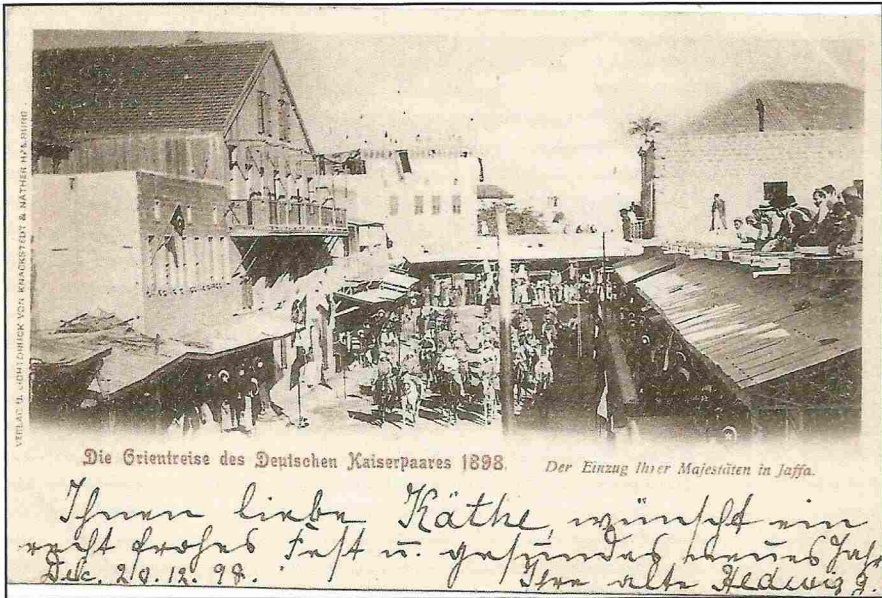 VERLAG U. LICHTDRUCK VON KNACKSTEDT & NÄTHER HAMBURG.
Die Orientreise des Deutschen Kaiserpaares 1898.
Der Einzug Ihrer Majestäten in Jaffa.
Ihnen liebe Käthe, wünscht ein
recht frohes Fest u. gesundes neues Jahr
Ihre alte Hedwig G.
Dec. 20.12.98.